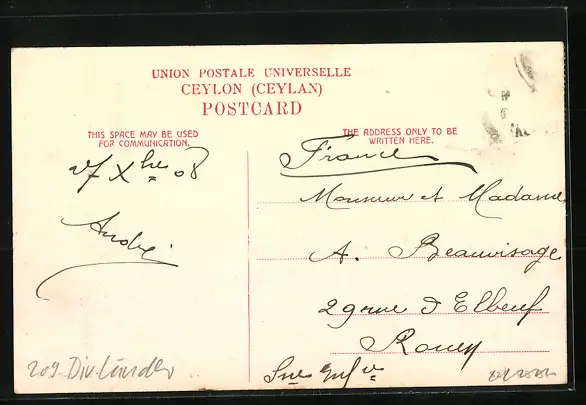 UNION POSTALE UNIVERSELLE
CEYLON (CEYLAN)
POSTCARD
THIS SPACE MAY BE USED
FOR COMMUNICATION.
THE ADDRESS ONLY TO BE
WRITTEN HERE.
27 Xbre 08
André
France
Monsieur et Madame
A. Beauvisage
29 rue d'Elbeuf
Rouen
Sne Infre
209 Div. Länder